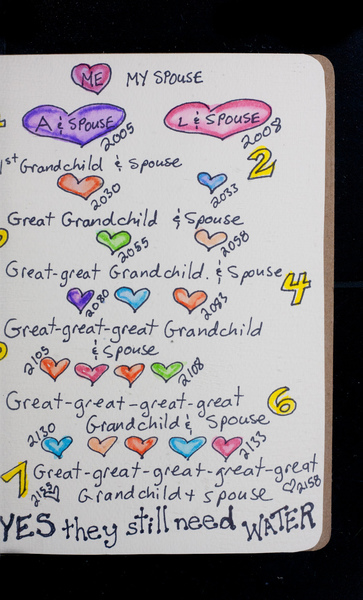 ME MY SPOUSE
A & SPOUSE L & SPOUSE
2005 2008
1st Grandchild & Spouse 2
2030 2033
Great Grandchild & Spouse
2055 2058
Great-great Grandchild. & Spouse 4
2080 2083
Great-great-great Grandchild
& Spouse
2105 2108
Great-great-great-great 6
Grandchild & Spouse
2130 2133
7 Great-great-great-great-great
Grandchild + spouse 2158
YES they still need WATER